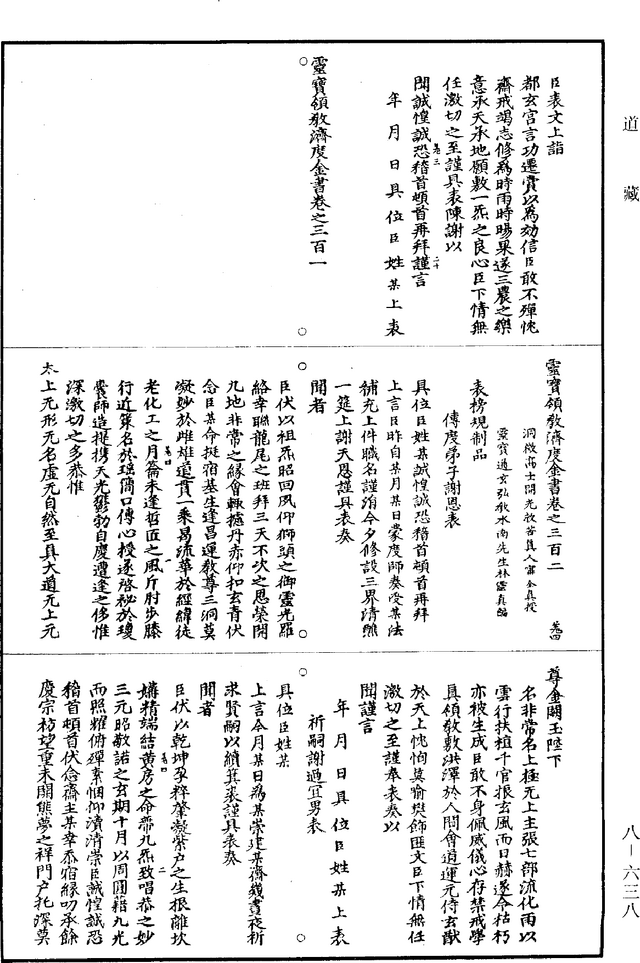 道藏
臣表文上詣
都玄宮言功遷賞以為効信臣敢不殫忱
齋戒竭志修為時雨時暘果遂三農之樂
意承天承地願敷一炁之良心臣下情無
任激切之至謹具表陳謝以
聞誠惶誠恐稽首頓首再拜謹言
卷三 二十
年月日具位臣姓某上表
靈寶領教濟度金書卷之三百一
靈寶領教濟度金書卷之三百二 卷四
洞微高士開光救苦真人甯全真授
靈寶通玄弘教水南先生林靈真編
表榜規制品
傳度弟子謝恩表
具位臣姓某誠惶誠恐稽首頓首再拜
上言臣昨自某月某日蒙度師奏受某法
補充上件職名謹涓今夕修設三界清醮
一筵上謝天恩謹具表奏
聞者
臣伏以祖炁昭回夙仰獅頭之御靈光羅
絡幸聯龍尾之班拜三天不次之恩榮開
九地非常之緣會輒攄丹赤仰扣玄青伏
念臣某命挺宿基生逢昌運教尊三洞莫
凝妙於雌雄道貫一乘曷疏華於經緯徒
老化工之月籥未逢哲匠之風斤肘步膝
行近策名於瑤簡口傳心授遂啓祕於瓊
囊師造提携天光鬱勃自慶遭逢之侈惟
深激切之多恭惟
太上元形元名虛无自然至真大道元上元
尊金闕玉陛下
名非常名上極无上主張七部流化雨以
雲行扶植千官振玄風而日赫遂令枯朽
亦被生成臣敢不身佩威儀心存禁戒學
真領教敷洪澤於人間會道運元侍玄猷
於天上忱恂莫喻樊飾匪文臣下情無任
激切之至謹奉表奏以
聞謹言
年月日具位臣姓某上表
祈嗣謝過宜男表
具位臣姓某
上言今月某日為某崇建某齋幾晝夜祈
求賢嗣以續箕裘謹具表奏
聞者
臣伏以乾坤孕粹肇凝紫戶之生根離坎
媾精端結黃房之命蔕九炁致唱恭之妙
卷四 二
三元昭敬諾之玄期十月以周圓藉九光
而照耀俯殫素悃仰瀆清崇臣誠惶誠恐
稽首頓首伏念齋主某幸忝宿緣叨承餘
慶宗枋望重未開熊夢之祥門戶托深莫
八—六三八